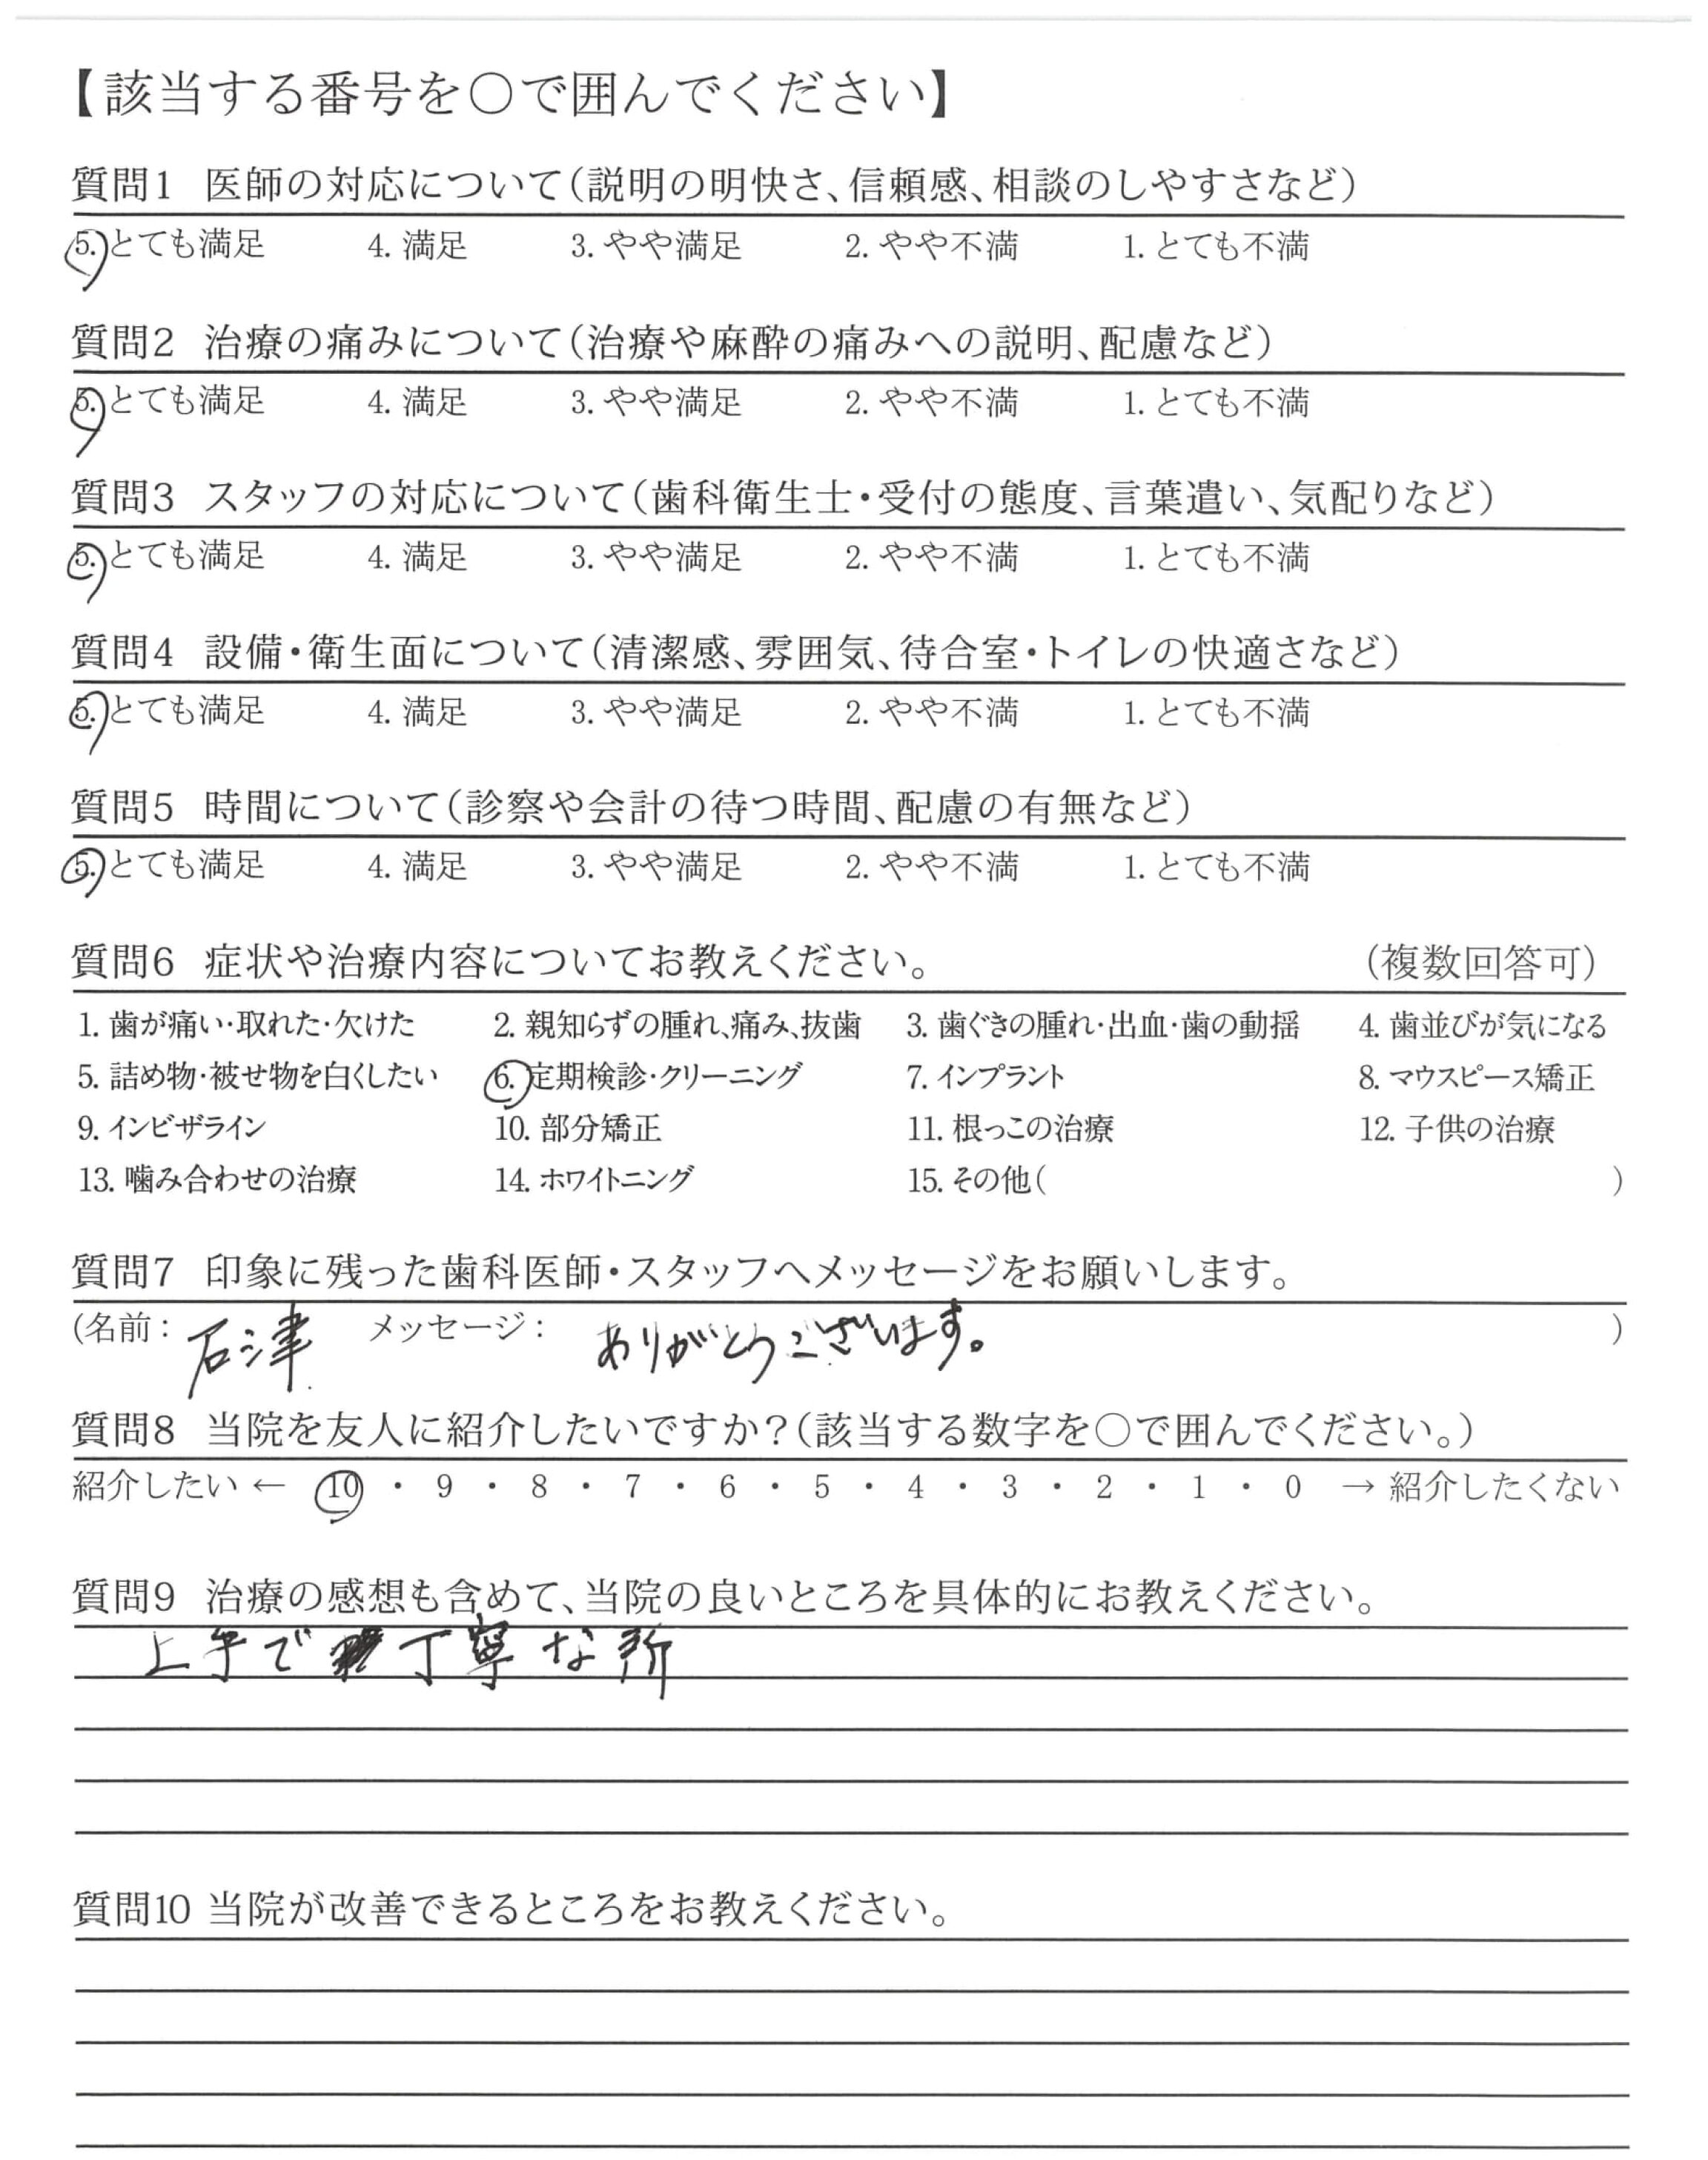 【該当する番号を○で囲んでください】
質問1 医師の対応について（説明の明快さ、信頼感、相談のしやすさなど）
5. とても満足 4. 満足 3. やや満足 2. やや不満 1. とても不満
質問2 治療の痛みについて（治療や麻酔の痛みへの説明、配慮など）
5. とても満足 4. 満足 3. やや満足 2. やや不満 1. とても不満
質問3 スタッフの対応について（歯科衛生士・受付の態度、言葉遣い、気配りなど）
5. とても満足 4. 満足 3. やや満足 2. やや不満 1. とても不満
質問4 設備・衛生面について（清潔感、雰囲気、待合室・トイレの快適さなど）
5. とても満足 4. 満足 3. やや満足 2. やや不満 1. とても不満
質問5 時間について（診察や会計の待つ時間、配慮の有無など）
5. とても満足 4. 満足 3. やや満足 2. やや不満 1. とても不満
質問6 症状や治療内容についてお教えください。 （複数回答可）
1. 歯が痛い・取れた・欠けた 2. 親知らずの腫れ、痛み、抜歯 3. 歯ぐきの腫れ・出血・歯の動揺 4. 歯並びが気になる
5. 詰め物・被せ物を白くしたい 6. 定期検診・クリーニング 7. インプラント 8. マウスピース矯正
9. インビザライン 10. 部分矯正 11. 根っこの治療 12. 子供の治療
13. 噛み合わせの治療 14. ホワイトニング 15. その他( )
質問7 印象に残った歯科医師・スタッフへメッセージをお願いします。
(名前： 石津 メッセージ： ありがとうございます。 )
質問8 当院を友人に紹介したいですか？（該当する数字を○で囲んでください。）
紹介したい ← 10 ・ 9 ・ 8 ・ 7 ・ 6 ・ 5 ・ 4 ・ 3 ・ 2 ・ 1 ・ 0 → 紹介したくない
質問9 治療の感想も含めて、当院の良いところを具体的にお教えください。
上手で丁寧な所
質問10 当院が改善できるところをお教えください。